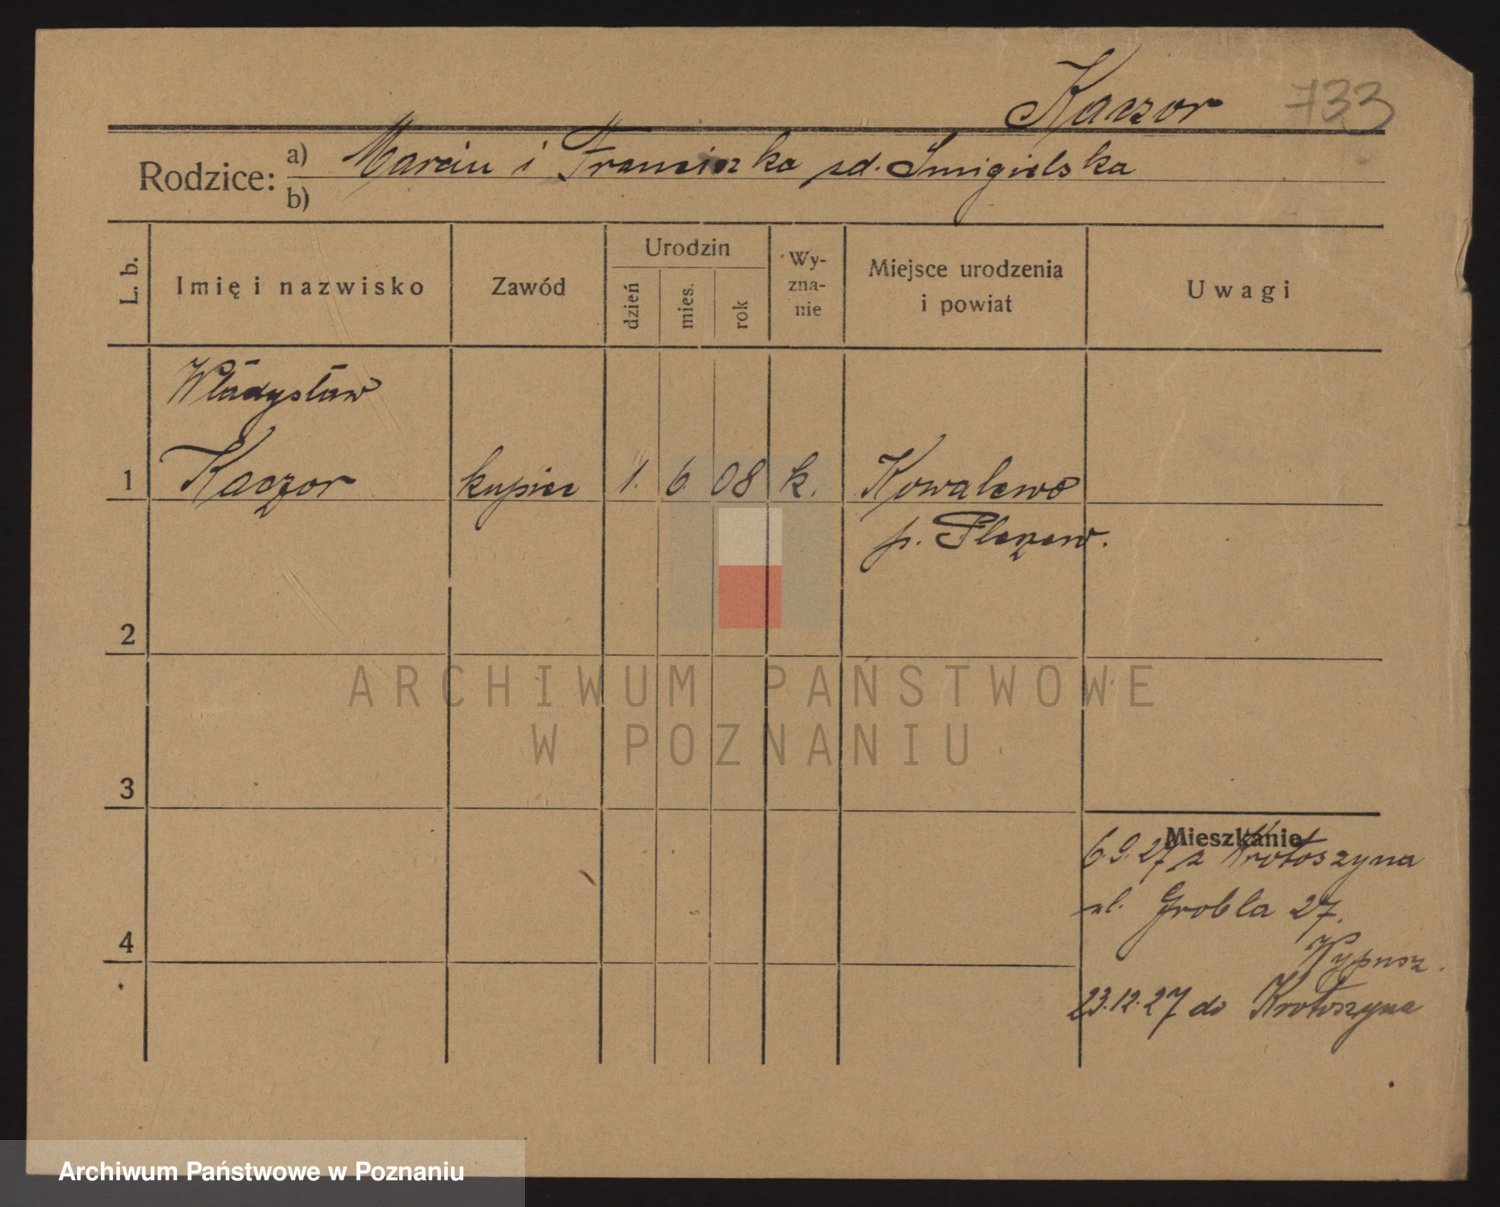 Kaczor 733
Rodzice: a) Marcin i Franciszka zd. Smigielska
b)
L. b.
Imię i nazwisko
Zawód
Urodzin
dzień
mies.
rok
Wy-
zna-
nie
Miejsce urodzenia
i powiat
Uwagi
Władysław
1 Kaczor kupiec 1. 6 08 k. Kowalewo
p. Pleszew.
2
ARCHIWUM PAŃSTWOWE
W POZNANIU
3
Mieszkanie
6.9.27 z Krotoszyna
ul. Grobla 27.
4
Wypusz.
23.12.27 do Krotoszyna
Archiwum Państwowe w Poznaniu